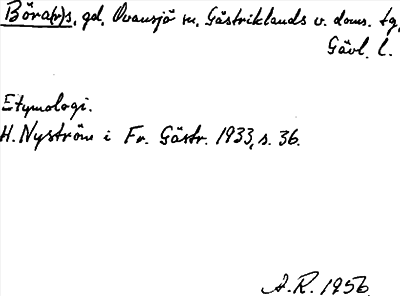 Böra(r)s, gd, Ovansjö sn, Gästriklands v. doms. tg,
Gävl. l.
Etymologi.
H. Nyström i Fr. Gästr. 1933, s. 36.
A.R. 1956.